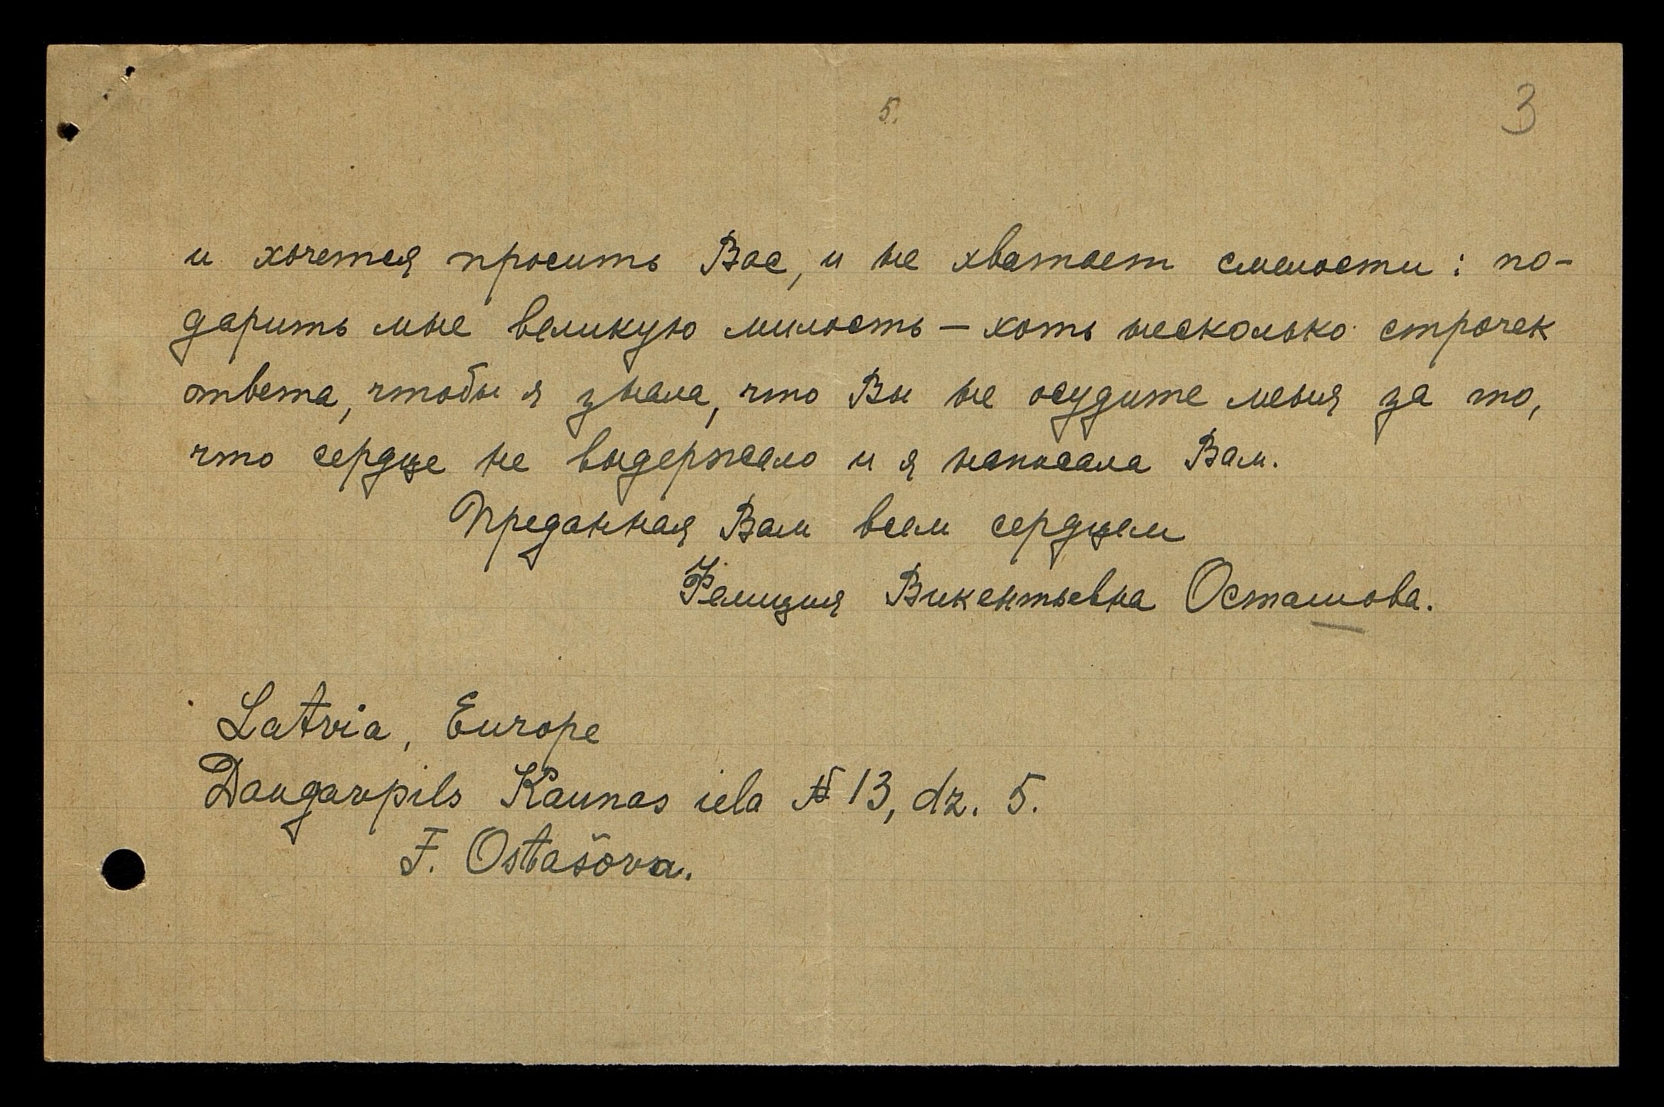 5.
3
и хочется просить Вас, и не хватает смелости: по-
дарить мне великую милость — хоть несколько строчек
ответа, чтобы я знала, что Вы не осудите меня за то,
что сердце не выдержало и я написала Вам.
Преданная Вам всем сердцем
Фелиция Викентьевна Осташова.
Latvia, Europe
Daugavpils Kaunas iela № 13, dz. 5.
F. Ostašova.